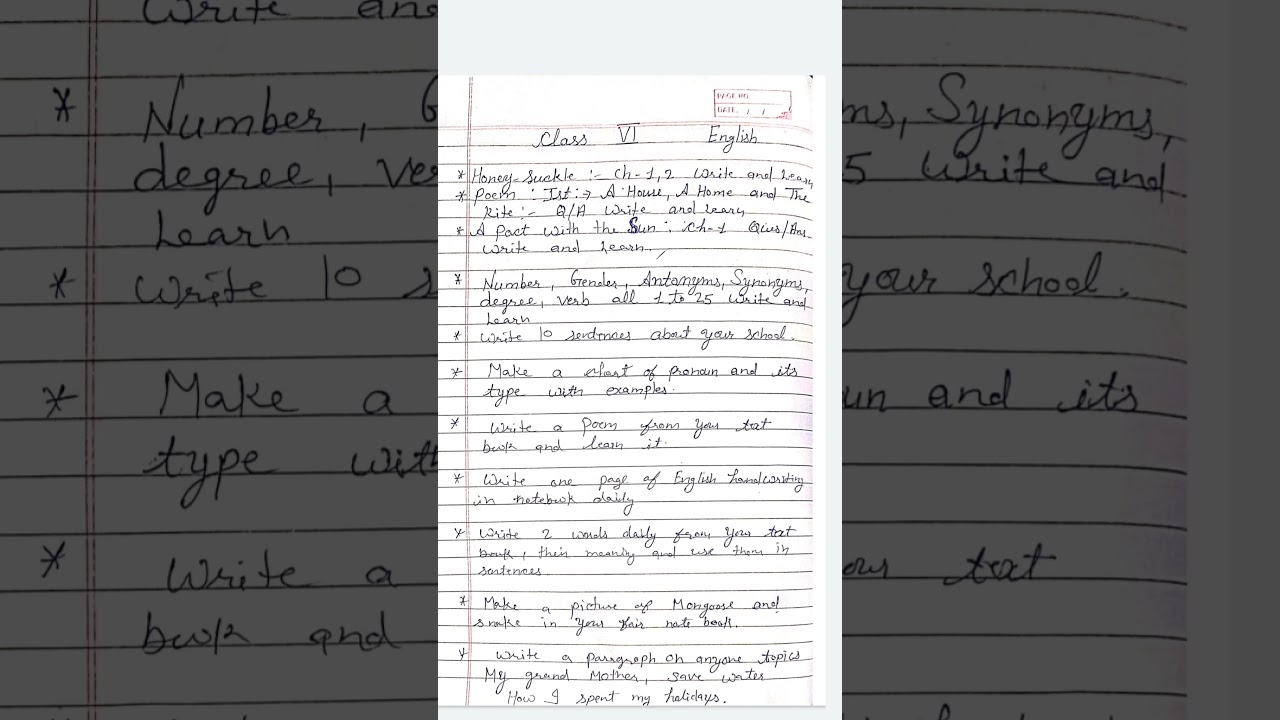 PAGE NO.
DATE: / /
Class VI English
* Honey-suckle :- Ch-1,2 Write and learn
* Poem : Ist :-> A House, A Home and The
Kite :- Q/A Write and learn
* A Pact with the Sun : Ch-1 Ques/Ans
Write and Learn.
* Number, Gender, Antonyms, Synonyms,
degree, verb all 1 to 25 Write and
Learn
* Write 10 sentences about your school.
* Make a chart of pronoun and its
type with examples.
* Write a Poem from your text
book and learn it.
* Write one page of English handwriting
in notebook daily
* Write 2 words daily from your text
book, their meaning and use them in
sentences
* Make a picture of Mongoose and
snake in your fair note book.
* Write a paragraph on anyone topics
My grand Mother, save water
How I spent my holidays.